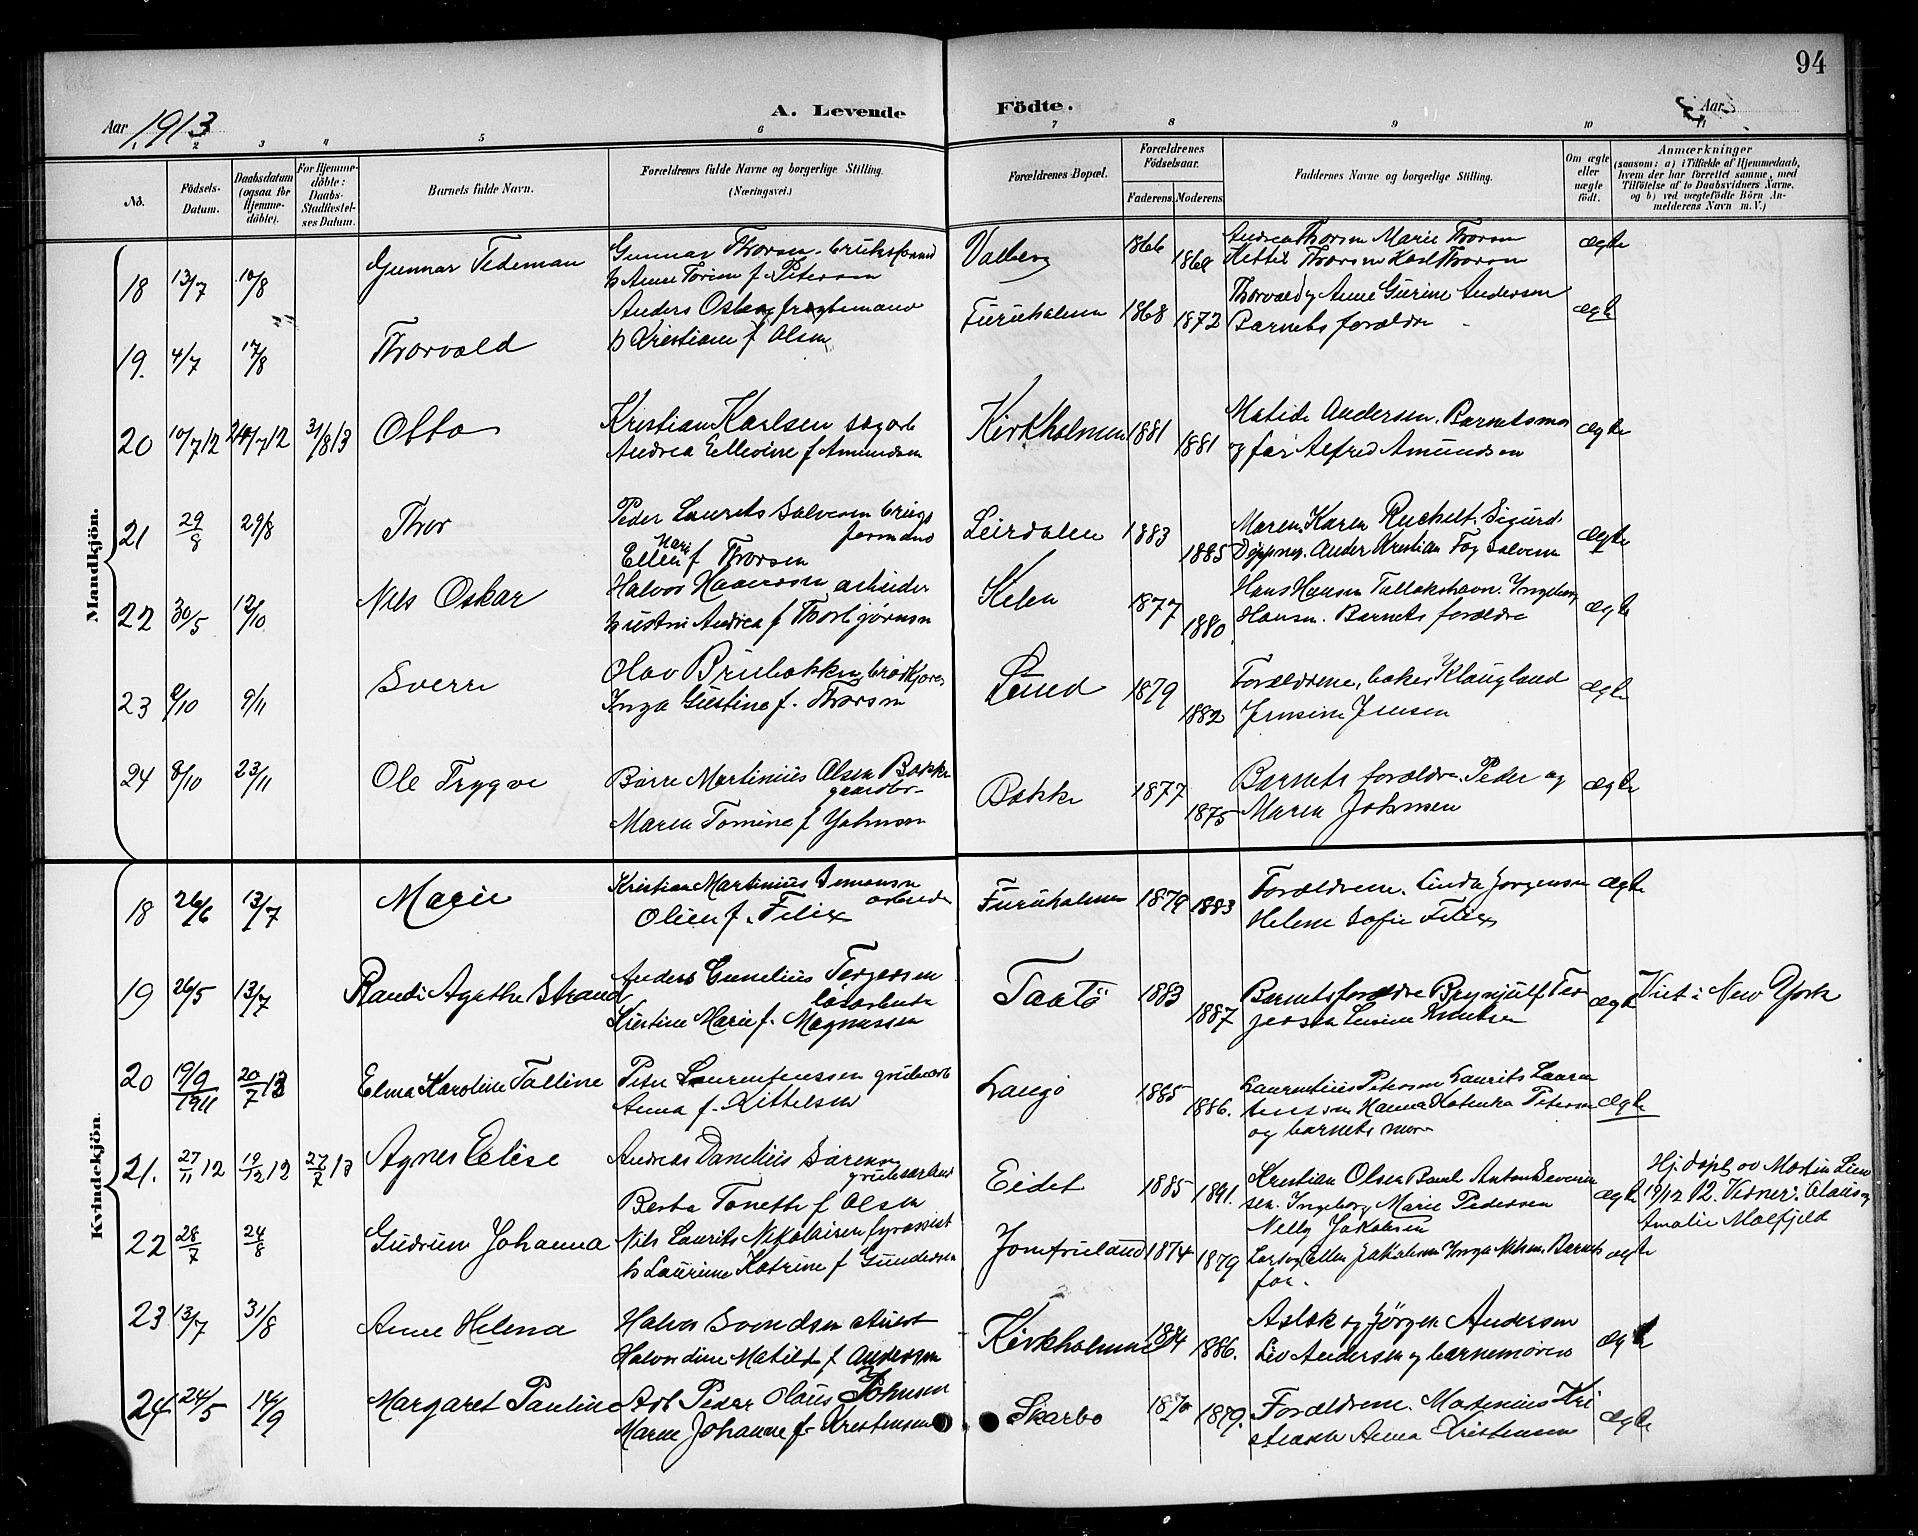 94
Aar 1913
A. Levende Fødte.
Aar
2 3 4 5 6 7 8 9 10 11
No.
Fødsels-Datum.
Daabsdatum (ogsaa for Hjemmedøbte).
For Hjemmedøbte: Daabs-Stadfæstelses Datum.
Barnets fulde Navn.
Forældrenes fulde Navne og borgerlige Stilling. (Næringsvei.)
Forældrenes Bopæl.
Forældrenes Fødselsaar.
Faderens Moderens
Faddernes Navne og borgerlige Stilling.
Om ægte eller uægte født.
Anmærkninger
(saasom: a) i Tilfælde af Hjemmedaab, hvem der har forrettet samme, med Tilføielse af to Daabsvidners Navne, og b) ved uægtefødte Børn Anmelderens Navn m. V.)
Mandkjön.
18 13/7 10/8 Gunnar Tedeman
Gunnar Thorsen
h Anne Torine f. Petersen
Valberg 1866 1868
Andrea Thorsen Marie Thorsen
Kettil Thorsen Karl Thorsen
ægte
19. 4/7 17/8 Thorvald
Anders
h Kristiane f Olsen
Furuholmen 1868 1872
Thorvald og Anne Gurine Andersen
Barnets forældre
ægte
20 10/7 12 7/12 31/8 13 Otto
Kristian Karlsen sagarb
Andrea Ellevine f Amundsen
Kirkholmen 1881 1881
Matide Andersen. Barnets mor
og far Alfred Amundsen
ægte
21 29/8 29/8 Thor
Peder Laurits Salvesen brugs
formand
Ellen Marie f Thorsen
Leirdalen 1883 1885
Maren Karen Sigurd
Anders Kristian Salvesen
ægte
22 30/5 12/10 Nils Oskar
Halvor arbeider
hustru Andrea f Thorbjørnsen
Kilen 1877 1880
Hans Hansen Ingeborg
Hansen. Barnets forældre
ægte
23 9/11 Sverre
Olav brødkjører
Inga Gustine f. Thorsen
Lund 1879 1882
Forældrene, baker Klaugland
Jensine Jensen
ægte
24 8/10 23/11 Ole Trygve
Børre Martinius Olsen Bakke
gaardbr.
Maren Tomine f Johnsen
Bakke 1877 1875
Barnets forældre. Peder og
Maren Johnsen
ægte
Kvindekjön
18 26/6 13/7 Marie
Kristian Martinius Simonsen
arbeider
Oline f. Felix
Furuholmen 1879 1883
Forældrene. Linda Jørgensen
Helene Sofie Felix
ægte
19 26/5 13/7 Randi Agathe Strand
Anders Cornelius Terjesen
løsarbeider
Kirstine Marie f. Magnussen
Taatö 1883 1887
Barnets forældre Brynjulf Ter
jesen Knutsen
ægte
Viet i New York
20 19/9 1911 20/7 13 Elma Karoline Talline
Peter Laurentiussen grubearb
Anna f. Kittelsen
Langö 1885 1886.
Laurentius Petersen Laurits Lauren
tiussen Hanna Katinka Petersen
og barnets mor
ægte
21. 27/11 12 19/12 12 27/7 13 Agnes Elise
Andreas Danelius Sørensen
grubearbeid
Berta Tonette f Olsen
Eidet 1885 1891.
Kristian Olsen Anton Severin
sen. Ingeborg Marie Pedersen
ægte
Hj. døpt av Martin Lien
19/12 12. Vidner: Olaus og
Amalie Molfjeld
22 28/7 24/8 Gudrun Johanna
Nils Laurits Nikolaisen fyrassist
h Laurine Katrine f Gundersen
Jomfruland 1874 1879
Nelly Jakobsen
Lars og Ellen Jakobsen Inga Nilsen Barnets
far.
ægte
23 13/7 31/8 Anne Helena
Halvor Svendsen stuert
Halvordine Matilde f Andersen
Kirkholmen 1884 1886.
Aslak og Jørgen Andersen
Liv Andersen og barnemoren
ægte
24 24/5 14/9 Margaret Pauline
Arb Peder Olaus Johnsen
Maren Johanne f Kristensen
Skarbo 1870 1879.
Forældrene. Martinius Kri
stensen Anna Kristensen
ægte